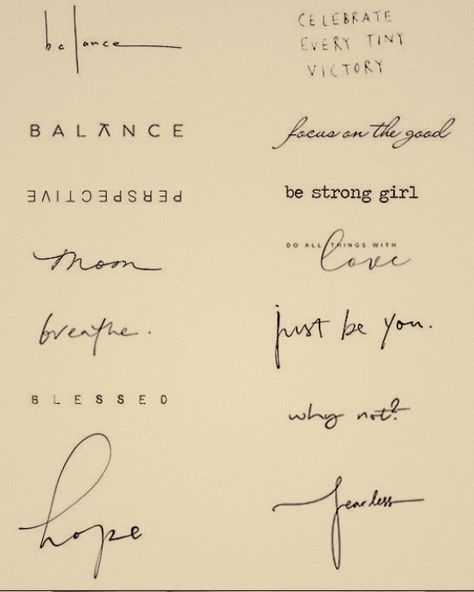 balance
BALANCE
PERSPECTIVE
moon
breathe.
BLESSED
hope
CELEBRATE
EVERY TINY
VICTORY
focus on the good
be strong girl
DO ALL THINGS WITH
love
just be you.
why not?
fearless